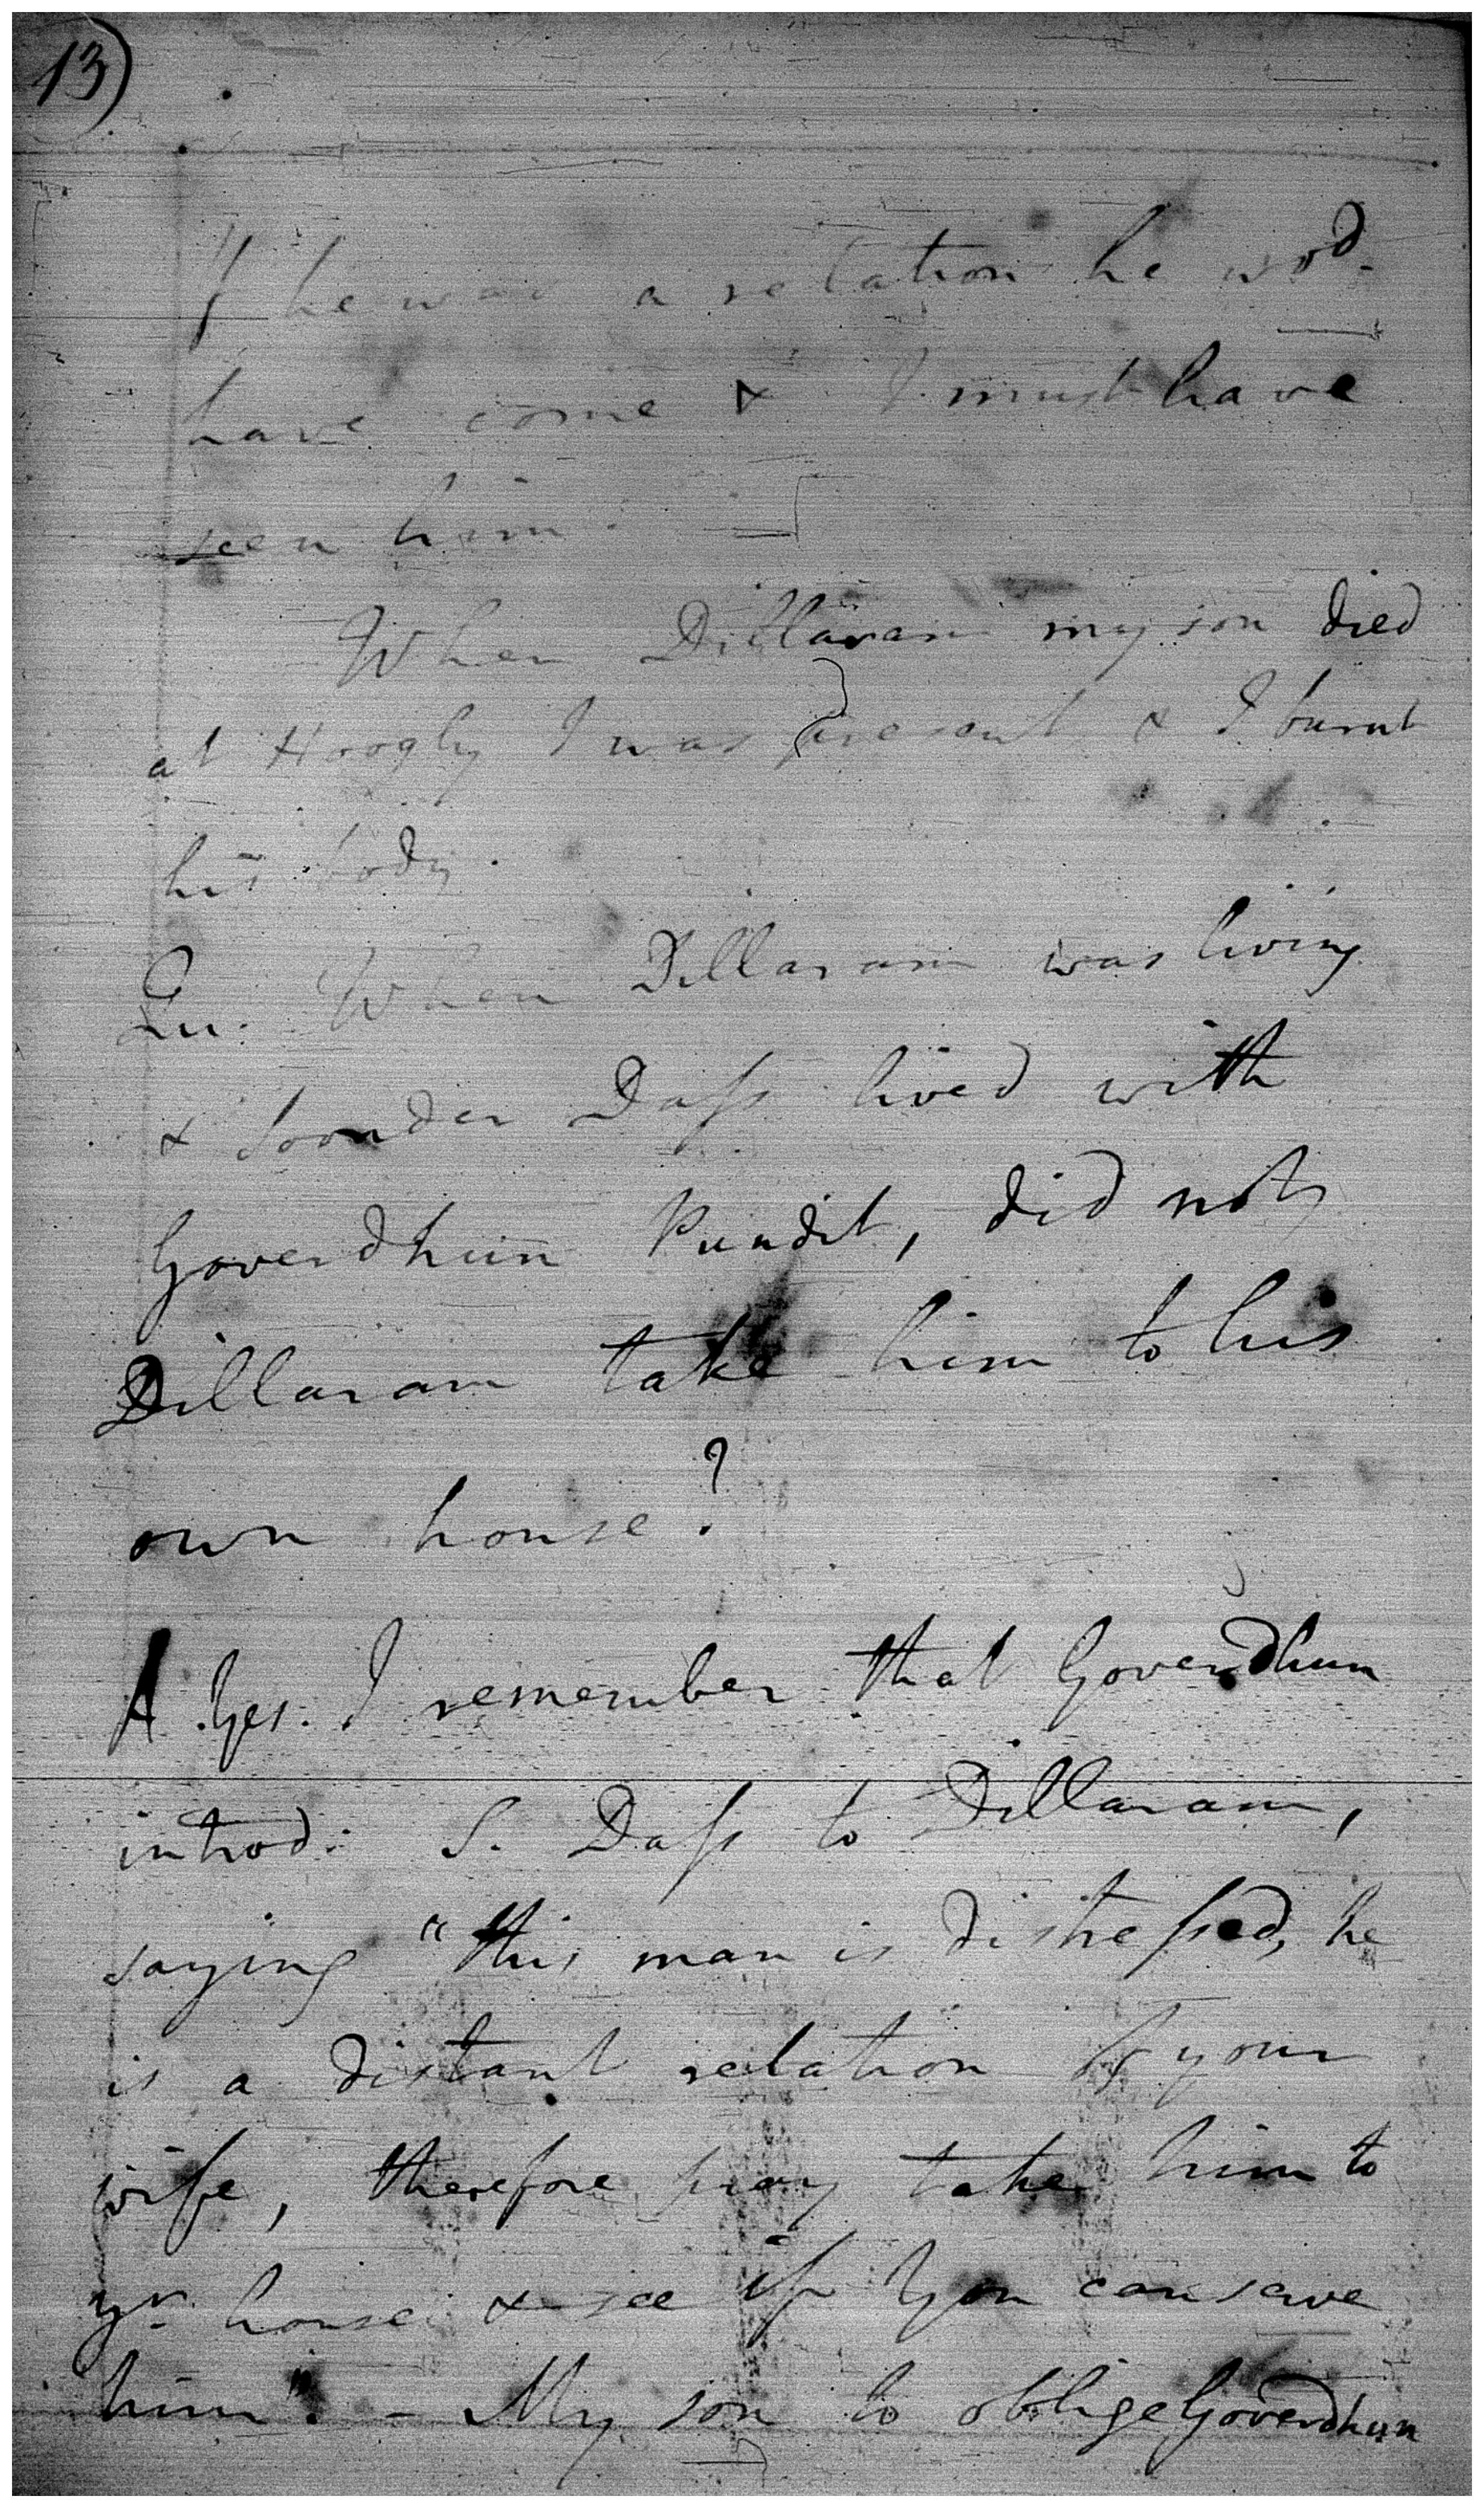 13)
If he was a relation he wod.
have come & I must have
seen him.
When Dillaram my son died
at Hoogly I was present & I burnt
his body.
Qu: When Dillaram was living
& Soonder Dass lived with
Goverdhun Pundit, did not
Dillaram take him to his
own house?
A. Yes. I remember that Goverdhun
introd: S. Dass to Dillaram,
saying "this man is distressed, he
is a distant relation of your
wife, therefore pray take him to
yr. house & see if you can serve
him". - My son to oblige Goverdhun